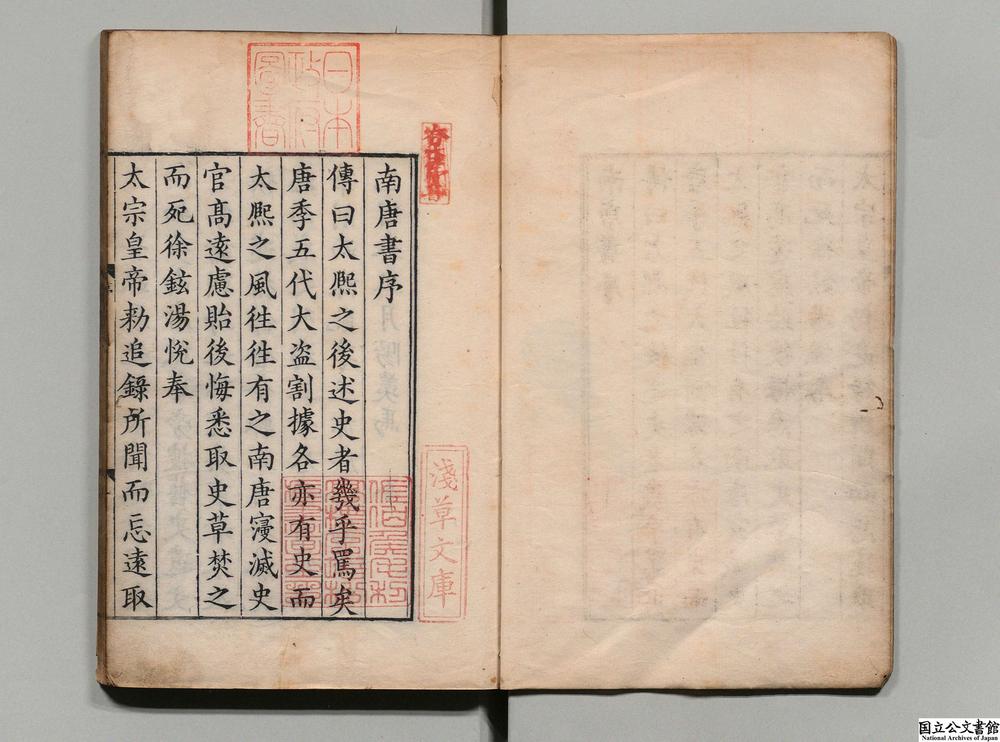 南唐書序
傳曰太熈之後述史者幾乎罵矣
唐季五代大盗割據各亦有史而
太熈之風徃徃有之南唐寖滅史
官髙逺慮貽後悔悉取史草焚之
而死徐鉉湯恱奉
太宗皇帝勑追錄所聞而忘逺取
日本
政府
圖書
淺草文庫
国立公文書館
National Archives of Japan